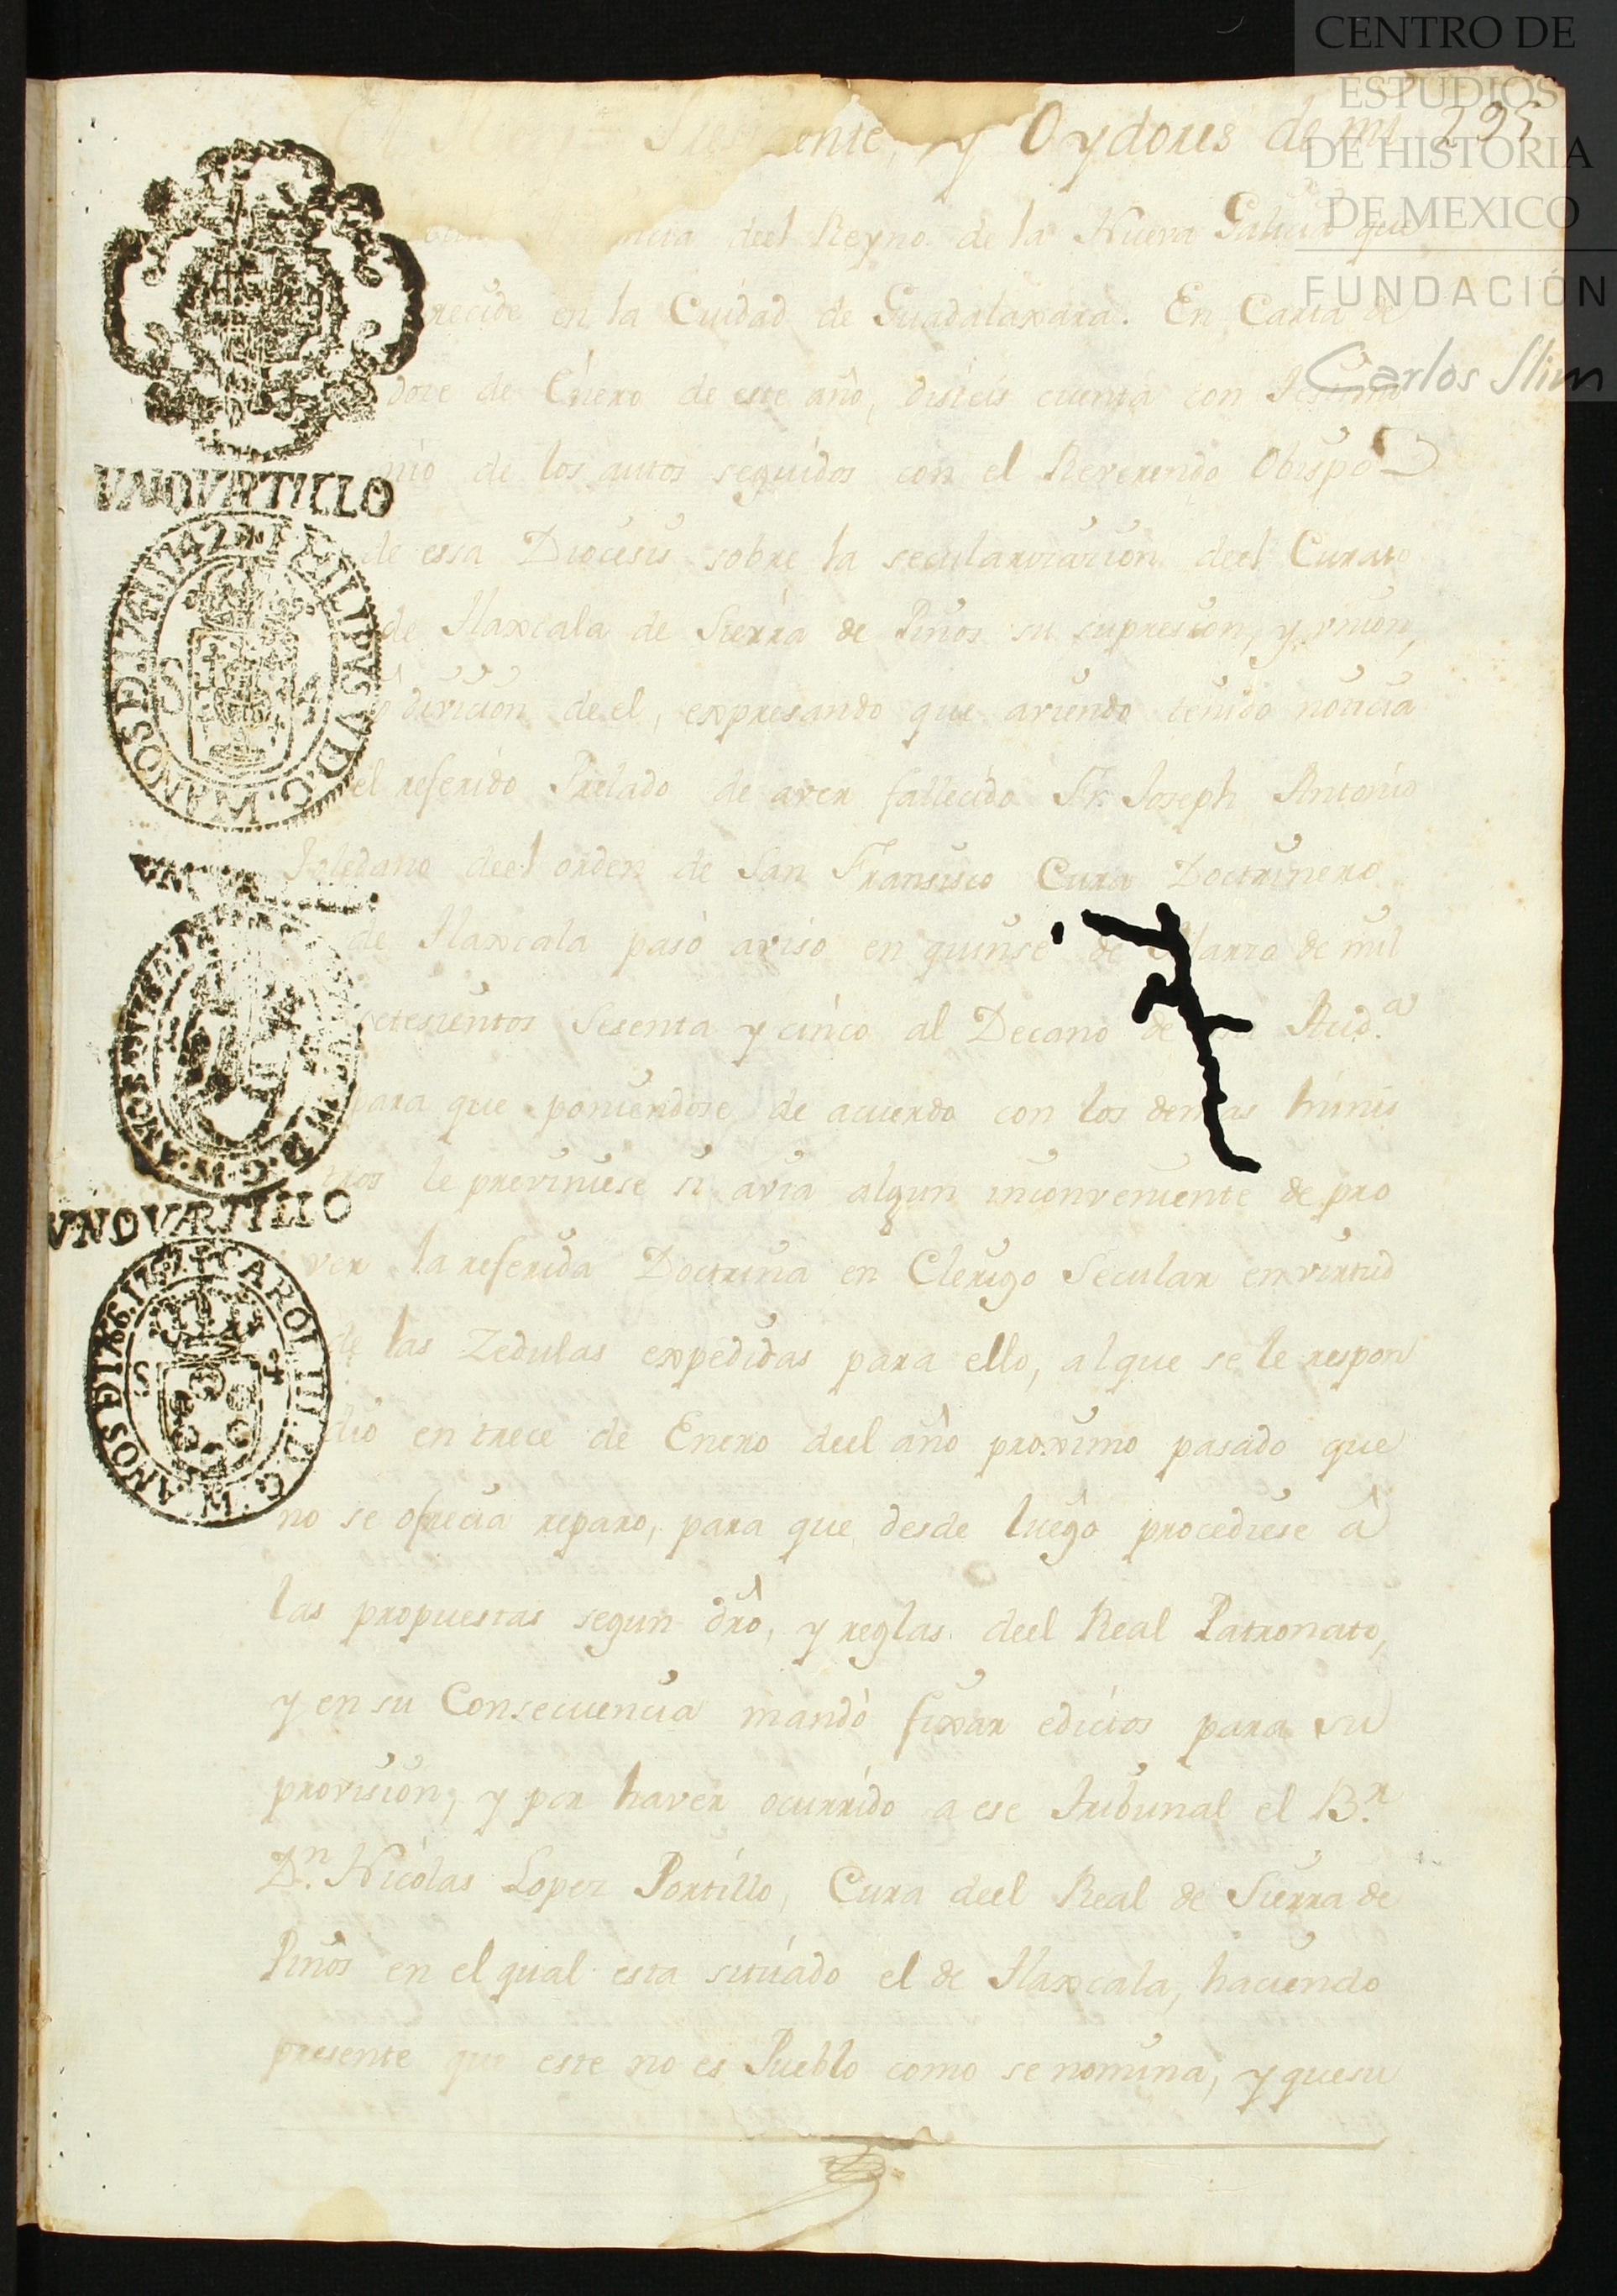 y Oydores de mi 295
deel Reyno de la Nueva Galicia que
recide en la Cuidad de Guadalaxara. En Carta de
doce de Enero de este año, disteis cuenta con Testimo
nio de los autos seguidos con el Reverendo Obispo
de essa Diocesis sobre la secularizazion deel Curato
de Tlaxcala de Sierra de Pinos su supresion, y vnion,
divicion deel, expresando que aviendo tenido noticia
el referido Prelado de aver fallecido Fr. Joseph Antonio
Toledano deel orden de San Fransisco Cura Doctrinero
de Tlaxcala pasó aviso en quinse de Marzo de mil
setesientos Sesenta y cinco al Decano de Aud.a
para que poniendose de acuerdo con los demas Minis
tros le previniese si avia algun inconveniente de pro
ver la referida Doctrina en Clerigo Secular en virtud
de las Zedulas expedidas para ello, alque se le respon
dió en trece de Enero deel año proximo pasado que
no se ofrecia reparo, para que desde luego procediese a
las propuestas segun dro, y reglas deel Real Patronato,
y en su Consecuencia mandó fixar edictos para su
provision, y por haver ocurrido a ese Tribunal el B.r
D.n Nicolas Lopez Portillo, Cura deel Real de Sierra de
Pinos en el qual esta situado el de Tlaxcala, haciendo
presente que este no es Pueblo como se nomina, y quesu
VNQVARTILLO
VNQVARTILLO
CAROL III D.G.
CENTRO DE
ESTUDIOS
DE HISTORIA
DE MEXICO
FUNDACIÓN
Carlos Slim